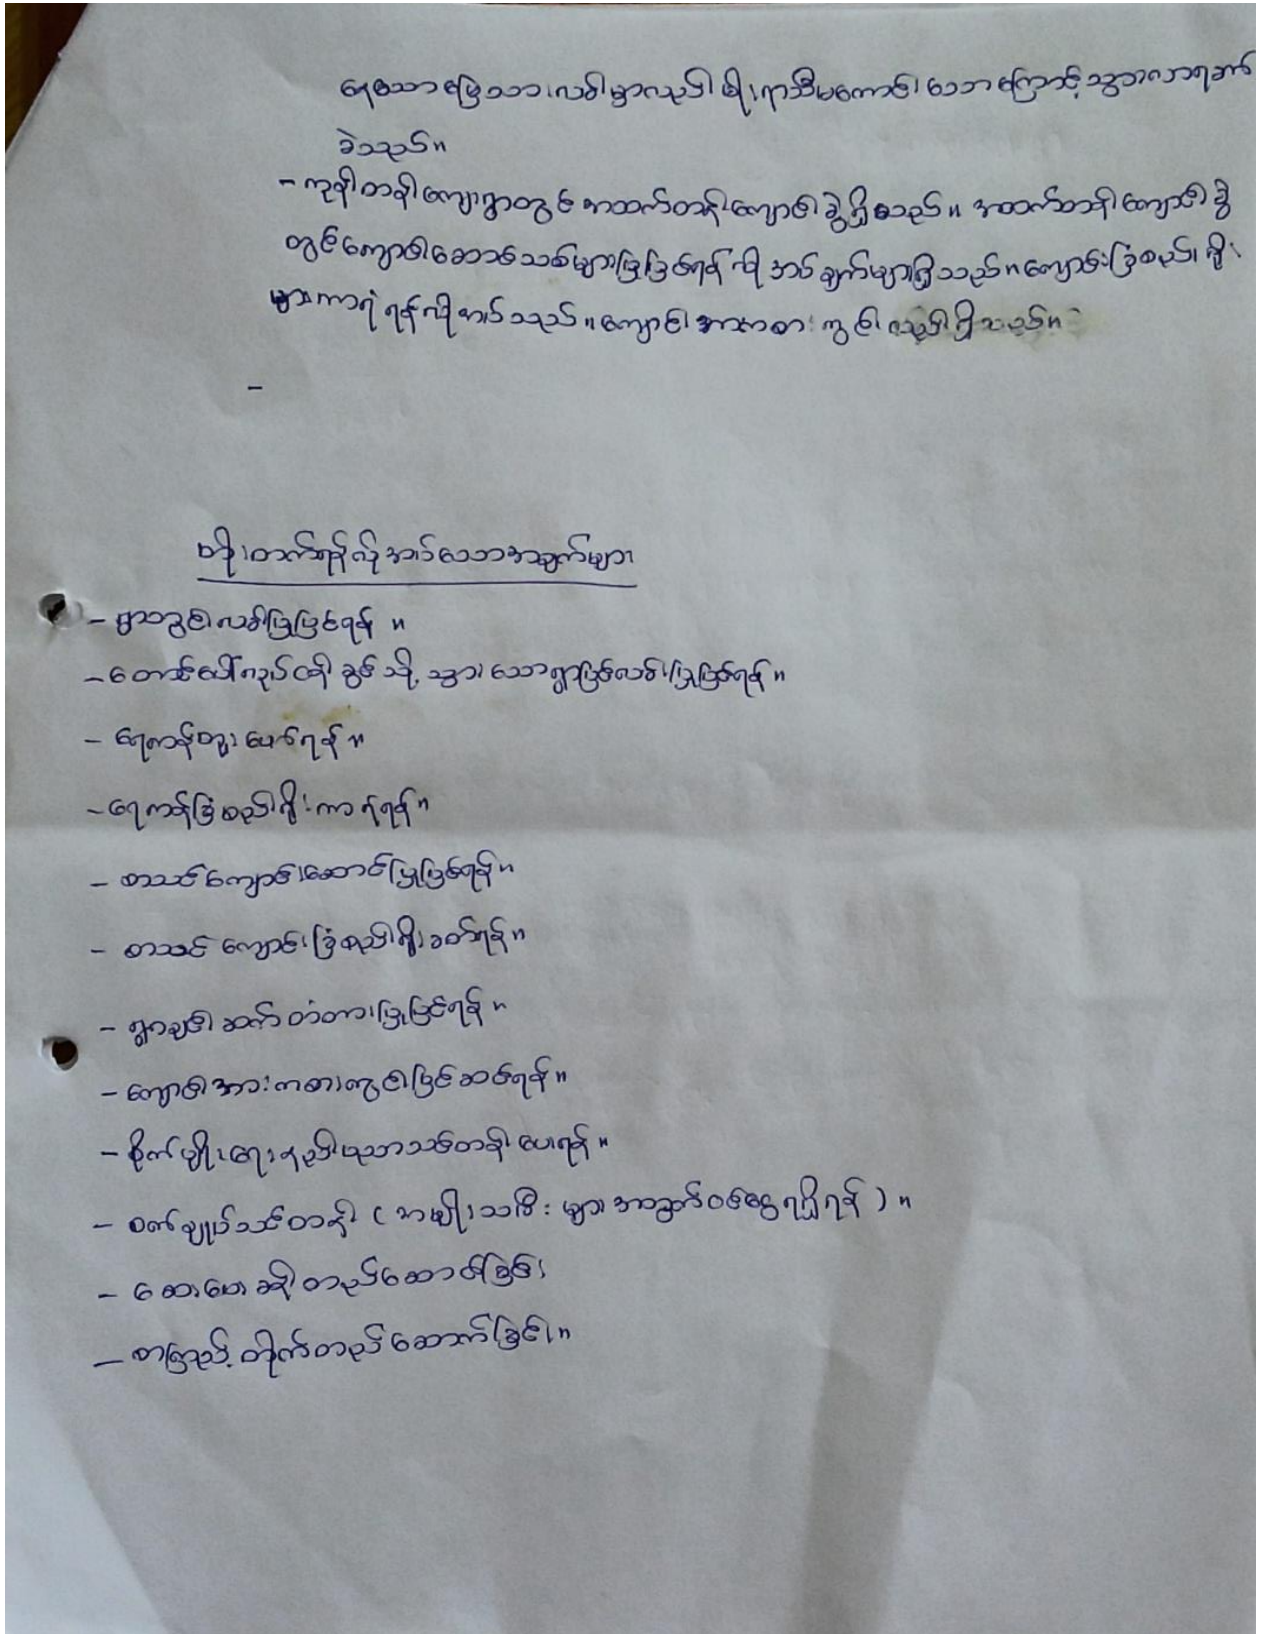 ရသော မြေသားလမ်းမှာလည်း မိုးရာသီမကောင်းသောကြောင့် သွားလာရခက်
ခဲသည်။
- ကုန်းတန်းကျေးရွာတွင် အထက်တန်းကျောင်းခွဲရှိသည်။ အထက်တန်းကျောင်းခွဲ
တွင် ကျောင်းဆောင်သစ်များပြုပြင်ရန် လိုအပ်ချက်များရှိသည်။ ကျောင်းခြံစည်းရိုး
များကာရံရန်လိုအပ်သည်။ ကျောင်းအားကစားကွင်းလည်းရှိသည်။
-
တိုးတက်ရန်လိုအပ်သောအချက်များ
- ရွာတွင်းလမ်းပြုပြင်ရန် ။
- တောင်ပေါ် သို့ သွားသောရွာပြင်လမ်းပြုပြင်ရန် ။
- ရေကန်တူးဖော်ရန် ။
- ရေကန်ခြံစည်းရိုးကာရံရန် ။
- စာသင်ကျောင်းဆောင်ပြုပြင်ရန် ။
- စာသင်ကျောင်းခြံစည်းရိုးခတ်ရန် ။
- ရွာချင်းဆက်တံတားပြုပြင်ရန် ။
- ကျောင်းအားကစားကွင်းပြင်ဆင်ရန် ။
- စိုက်ပျိုးရေးနည်းပညာသင်တန်းပေးရန် ။
- စက်ချုပ်သင်တန်း ( အမျိုးသမီးများအတွက်ဝင်ငွေရရှိရန် ) ။
- ဆေးပေးခန်းတည်ဆောက်ခြင်း
- စာကြည့်တိုက်တည်ဆောက်ခြင်း ။